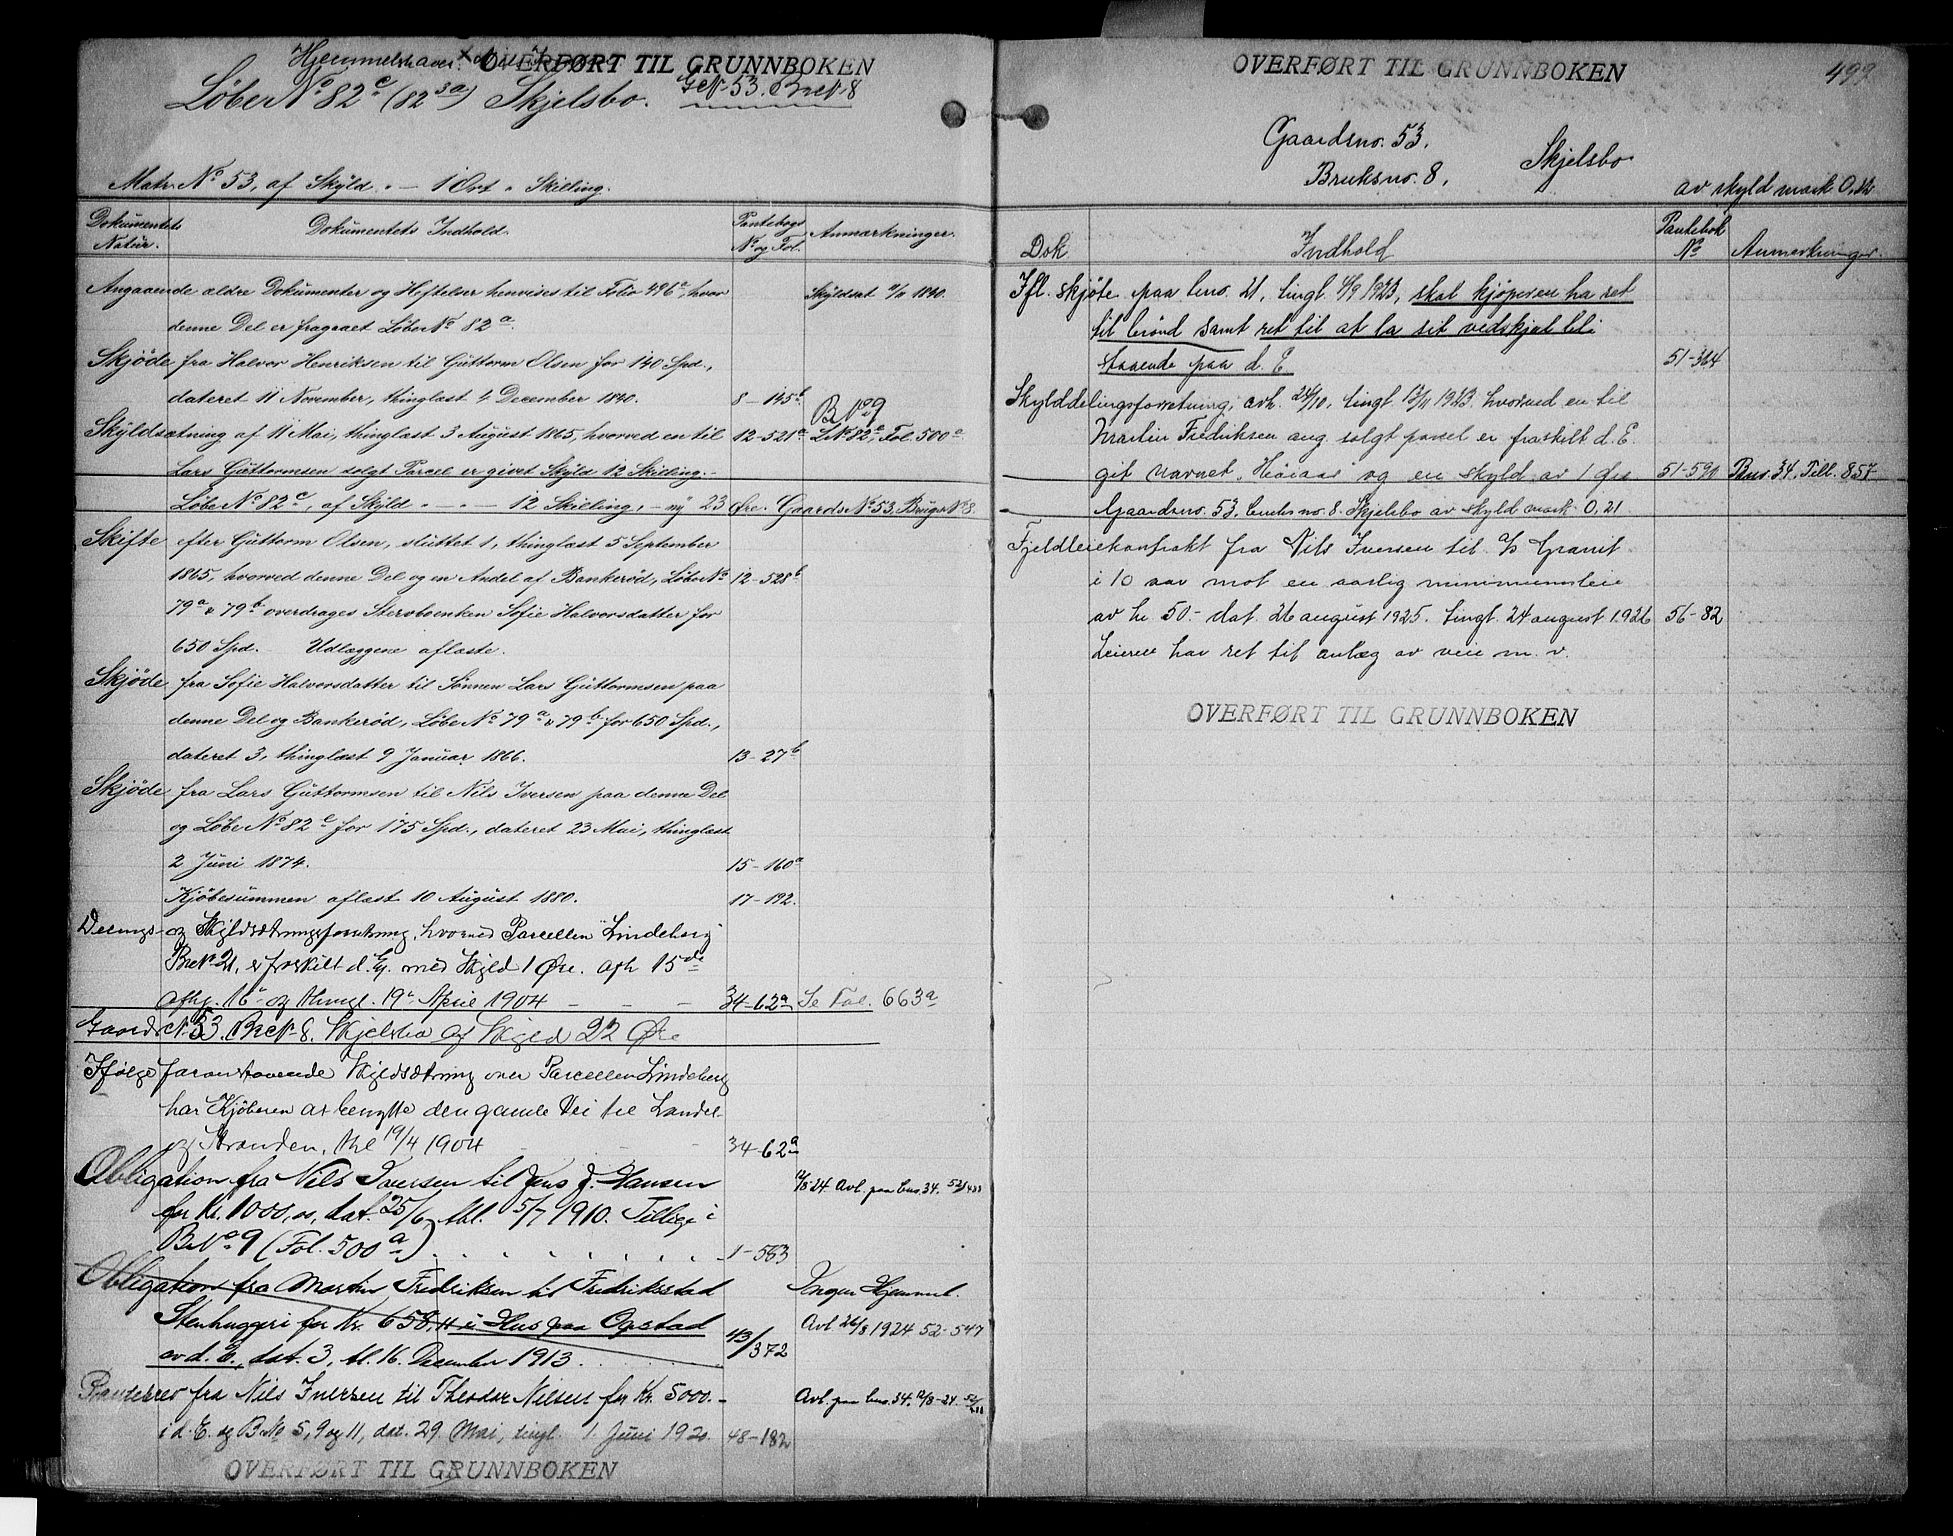 Hjemmelshaver: Nils Iversen
OVERFØRT TIL GRUNNBOKEN
Løbe No 82c (82 3a) Skjelsbo. GNo 53. BrNo 8
Matr. No 53, af Skyld " – 1 Ort " Skilling.
Dokumentets Natur. Dokumentets Indhold. Pantebogs No og Fol. Anmærkninger.
Angaaende ældre Dokumenter og Heftelser henvises til Folio 496a, hvor Skyldsat 1840.
denne Del er fragaaet Løbe No 82a.
Skjøde fra Halvor Henriksen til Guttorm Olsen for 140 Spd.,
dateret 11 November, thinglæst 4 December 1840. 8 – 145b
B No 9
Skyldsætning af 11 Mai, thinglæst 3 August 1865, hvorved en til 12-521a LNo 82e, Fol. 500a
Lars Guttormsen solgt Parcel er givet Skyld 12 Skilling.
Løbe No 82c, af Skyld " – " – 12 Skilling, – ny 23 Øre. Gaards No 53, Brugs No 8.
Skifte efter Guttorm Olsen, sluttet 1, thinglæst 5 September
1865, hvorved denne Del og en Andel af Bankerød, Løbe No 12-528b
79a & 79b overdrages Stervboenken Sofie Halvorsdatter for
650 Spd. Udlæggene aflæste.
Skjøde fra Sofie Halvorsdatter til Sønnen Lars Guttormsen paa
denne Del og Bankerød, Løbe No 79a & 79b for 650 Spd.,
dateret 3, thinglæst 9 Januar 1866. 13-27b
Skjøde fra Lars Guttormsen til Nils Iversen paa denne Del
og Løbe No 82e for 175 Spd., dateret 23 Mai, thinglæst
2 Juni 1874. 15-160a
Kjøbesummen aflæst 10 August 1880. 17-192.
Delings- og Skyldsætningsforretning, hvorved Parcellen "Lindeberg"
BrNo 21, er fraskilt d. E. med Skyld 1 Øre. afh 15de
afhj. 16 og thingl. 19de April 1904 – – – 34-62a Se Fol. 663a
Gaards No 53. BrNo 8. Skjelsbo af Skyld 22 Øre
Ifølge foranstaaende Skyldsætning over Parcellen Lindeberg
har Kjøberen at benytte den gamle Vei til Landet
og Stranden, thl 19/4 1904 34-62a
Obligation fra Nils Iversen til Jens J. Hansen 12/8 24 Avl. paa bno. 34.
for Kr. 1000,00, dat. 25/6, thl. 5/7 1910. Tillige i
BNo 9 (Fol. 500a) . . . . . . . 1-563
Obligation fra Martin Fredriksen til Fredriksstad Ingen Hjemmel.
Stenhuggeri for Kr. 658,11 i Hus paa Opstad Avl 26/8 1924 52-547
av d. E., dat. 3, tl. 16. December 1913. 43/372
Pantebrev fra Nils Iversen til Theodor Nilsen for Kr. 5000.- Avl. paa bno. 34. 12/8-24.
i d. E. og BNo 5, 9 og 11, dat. 29. Mai, tingl. 1. Juni 1920. 48-182
OVERFØRT TIL GRUNNBOKEN
OVERFØRT TIL GRUNNBOKEN 499.
Gaardsno. 53,
Bruksno. 8, Skjelsbo
av skyld mark 0,22
Dok Indhold Pantebok No Anmerkninger.
Ifl. skjøte paa bno. 21, tingl. 4/9 1923, skal kjøperen ha ret
til brønd samt ret til at la sit vedskjul bli
staaende paa d. E 51-364
Skylddelingsforretning, avh. 24/10, tingl. 12/11 1923 hvorved en til
Martin Fredriksen ang. solgt parsel er fraskilt d. E.
git navnet "Høiaas" og en skyld av 1 øre 51-590 Bno. 34, Till. 857
Gaardsno. 53, bruksno. 8. Skjelsbo av skyld mark 0,21
Fjeldleiekontrakt fra Nils Iversen til A/s Granit
i 10 aar mot en aarlig minimumsleie
av kr. 50.- dat. 26 august 1925. tingl. 24 august 1926 56-82
Leieren har ret til anlæg av veie m. v.
OVERFØRT TIL GRUNNBOKEN